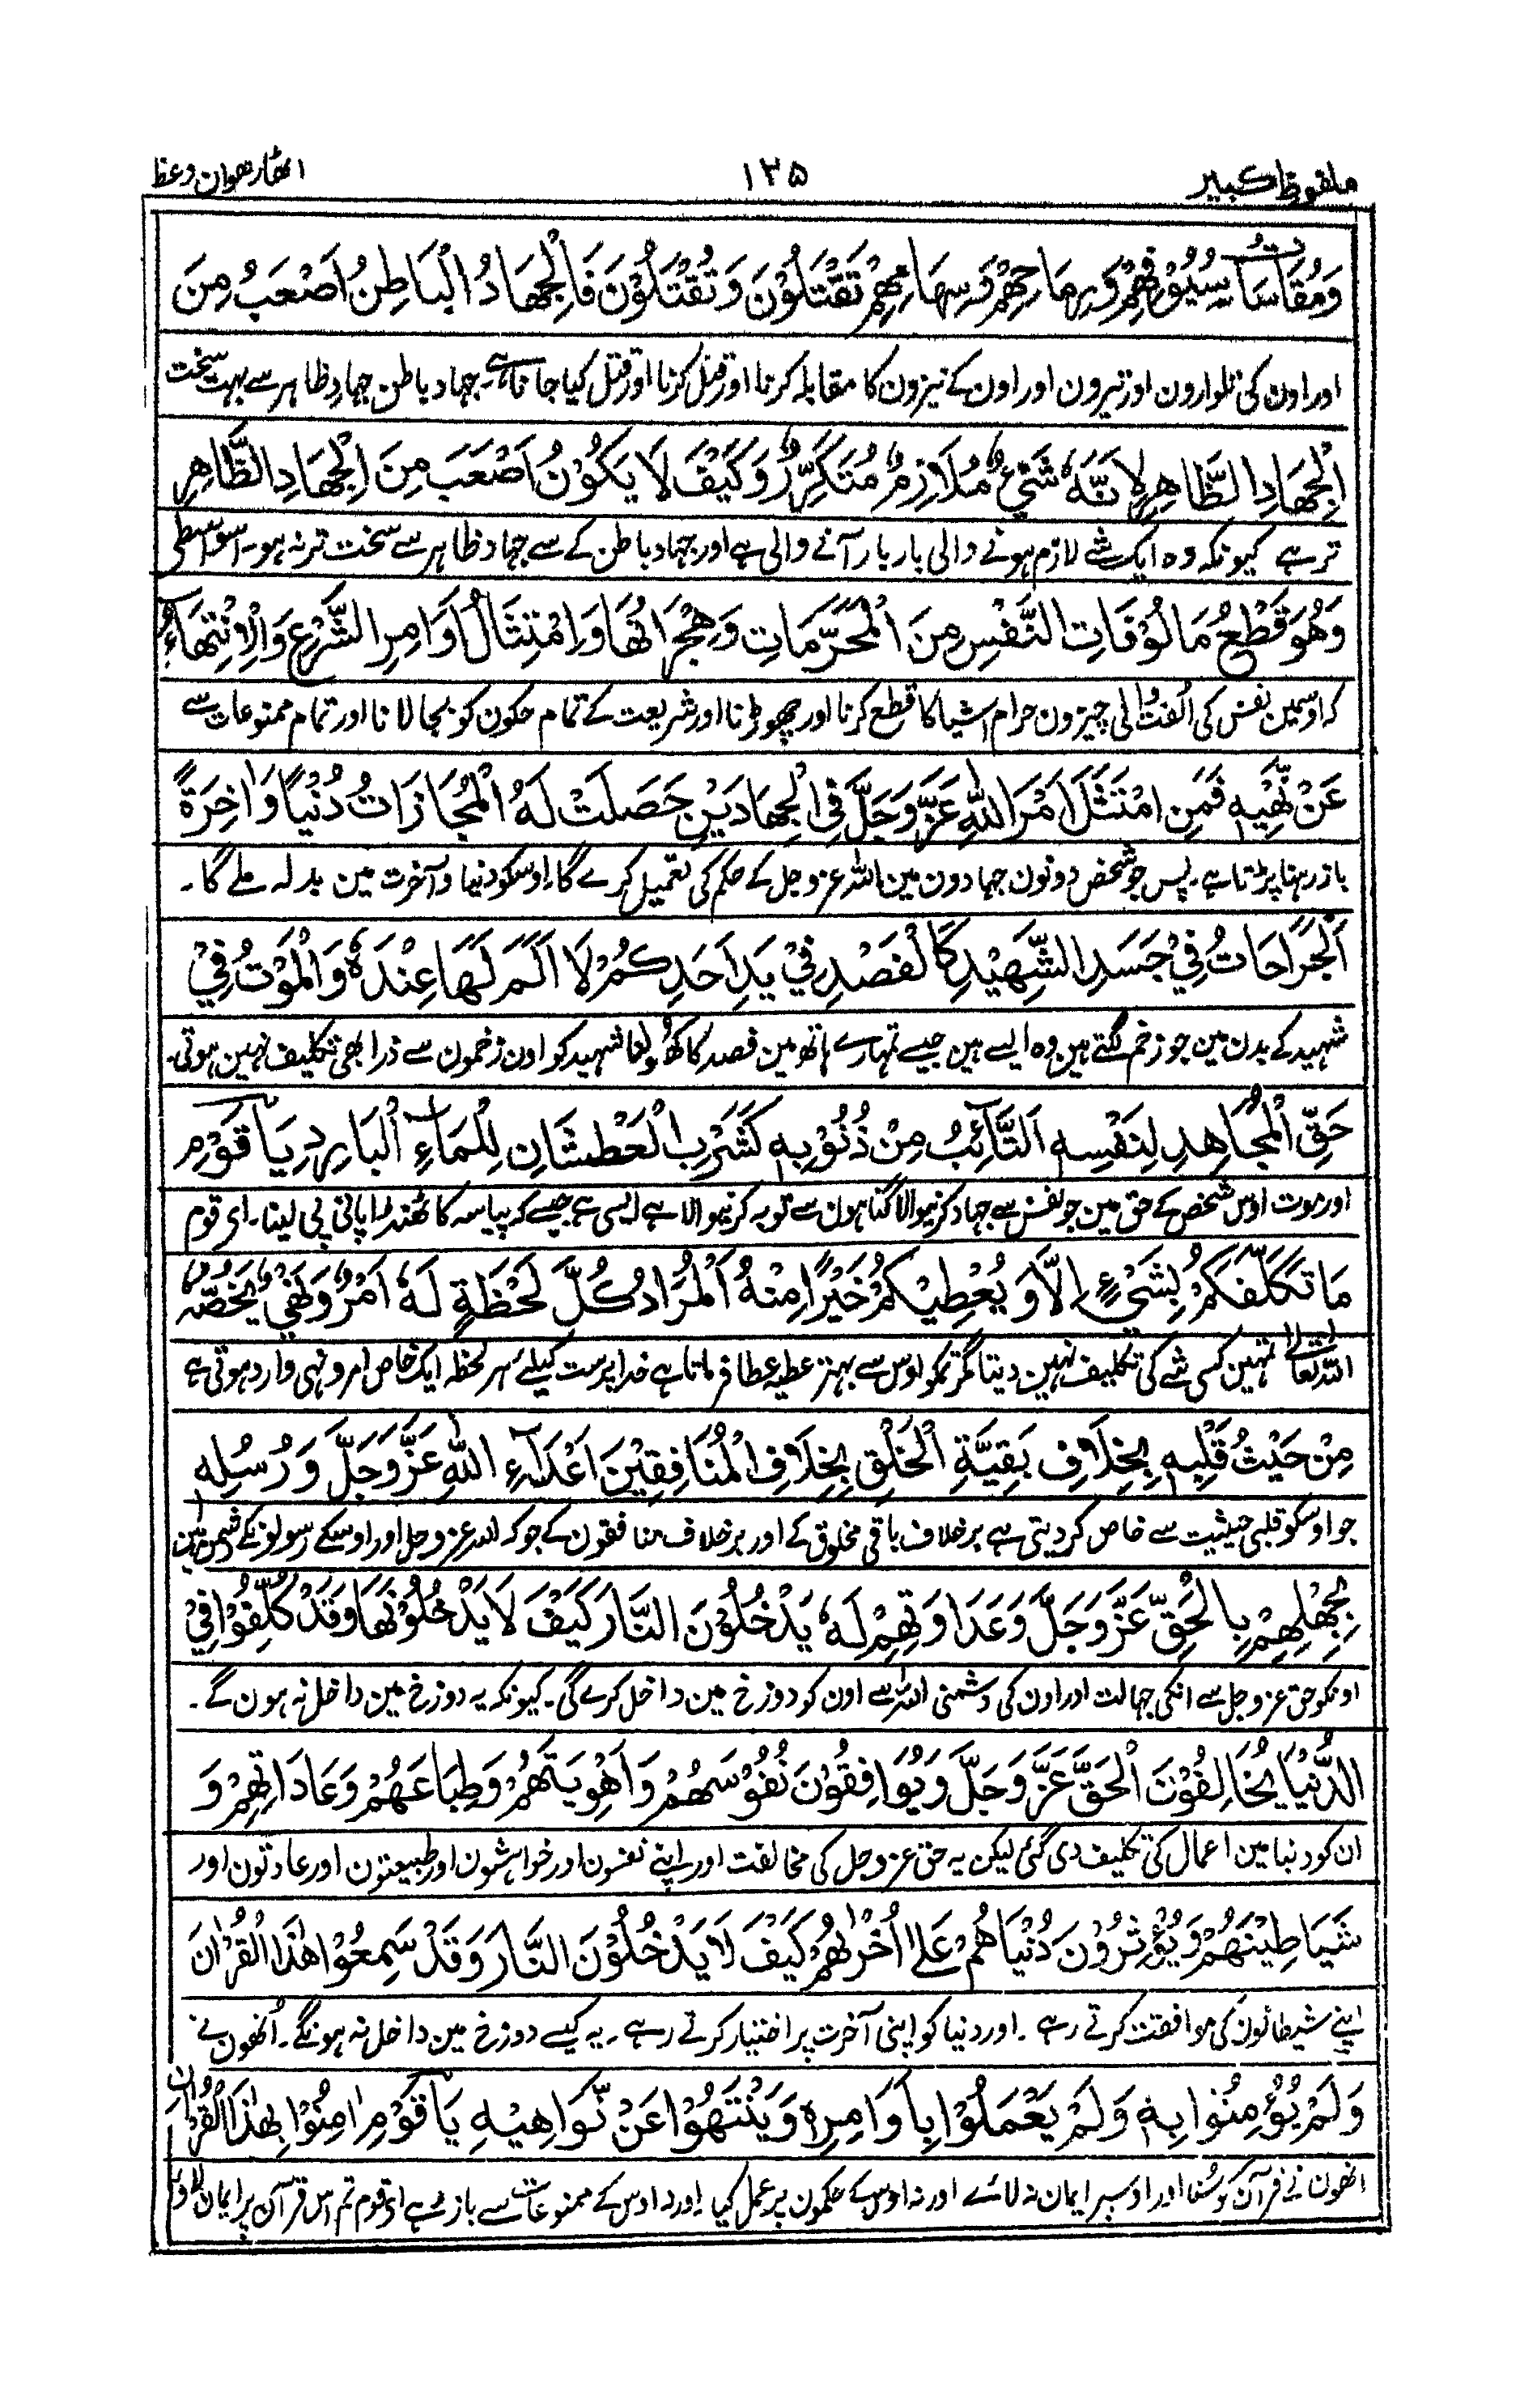 ملفوظ کبیر
۱۳۵
اٹھارھوان وعظ
وَمُقَاسَاتُ سُیُوْفِهِمْ وَرِمَاحِهِمْ وَسِهَامِهِمْ تَقْتَلُوْنَ وَتُقْتَلُوْنَ فَالْجِهَادُ الْبَاطِنُ اَصْعَبُ مِنَ
اور اون کی تلوارون اور تیرون اور اون کے نیزون کا مقابلہ کرنا اور قتل کرنا اور قتل کیا جانا ہے۔ جہاد باطن جہاد ظاہر سے بہت سخت
الْجِهَادِ الظَّاهِرِ لِاَنَّهٗ شَیْءٌ مُلَازِمٌ مُتَکَرِّرٌ وَکَیْفَ لَا یَکُوْنُ اَصْعَبَ مِنَ الْجِهَادِ الظَّاهِرِ
تر ہے کیونکہ وہ ایک شے لازم ہونے والی بار بار آنے والی ہے اور جہاد باطن کے سے جہاد ظاہر سے سخت تر نہ ہو۔ اسواسطی
وَهُوَ قَطْعُ مَالُوْفَاتِ النَّفْسِ مِنَ الْمُحَرَّمَاتِ وَهِجْرَانُهَا وَامْتِثَالُ اَوَامِرِ الشَّرْعِ وَالْاِنْتِهَاءُ
کہ اوسمین نفس کی الفت والی چیزون حرام اشیا کا قطع کرنا اور چھوڑنا اور شریعت کے تمام حکون کو بجا لانا اور تمام ممنوعات سے
عَنْ نَّهْیِهٖ فَمَنِ امْتَثَلَ اَمْرَ اللهِ عَزَّ وَجَلَّ فِی الْجِهَادَیْنِ حَصَلَتْ لَهُ الْمُجَازَاتُ دُنْیًا وَاٰخِرَةً
باز رہنا پڑتا ہے۔ پس جو شخص دونون جہادون مین اللہ عزوجل کے حکم کی تعمیل کرے گا اوسکو دنیا و آخرت مین بدلہ ملے گا۔
اَلْجَرَاحَاتُ فِیْ جَسَدِ الشَّهِیْدِ کَالْفَصْدِ فِیْ یَدِ اَحَدِکُمْ لَا اَلَمَ لَهَا عِنْدَهٗ وَالْمَوْتُ فِیْ
شہید کے بدن مین جو زخم لگتے ہین وہ ایسے ہین جیسے تمہارے ہاتھ مین فصد کا کھولنا شہید کو اون زخمون سے ذرا بھی تکلیف نہین ہوتی۔
حَقِّ الْمُجَاهِدِ لِنَفْسِهِ التَّائِبُ مِنْ ذُنُوْبِهٖ کَشَرْبِ الْعَطْشَانِ لِلْمَاءِ الْبَارِدِ یَا قَوْمِ
اور موت اوس شخص کے حق مین جو نفس سے جہاد کرنیوالا گناہون سے توبہ کرنیوالا ہے ایسی ہے جیسے کہ پیاسہ کا ٹھنڈا پانی پی لینا۔ ای قوم
مَا تَکَلَّفَکُمْ بِشَیْءٍ اِلَّا وَ یُعْطِیْکُمْ خَیْرًا مِنْهُ اَلْمُرَادُ کُلَّ لَحْظَةٍ لَهٗ اَمْرٌ وَنَهْیٌ یَخُصُّهٗ
اللہ تعالیٰ تمہین کسی شے کی تکلیف نہین دیتا مگر تمکو اوس سے بہتر عطیہ عطا فرماتا ہے خدا پرست کیلئے ہر لحظہ ایک خاص امر و نہی وارد ہوتی ہے
مِنْ حَیْثُ قَلْبِهٖ بِخِلَافِ بَقِیَّةِ الْخَلْقِ بِخِلَافِ الْمُنَافِقِیْنَ اَعْدَاءِ اللهِ عَزَّ وَجَلَّ وَ رُسُلِهٖ
جو اوسکو قلبی حیثیت سے خاص کر دیتی ہے برخلاف باقی مخلوق کے اور برخلاف منافقون کے جو کہ اللہ عزوجل اور اوسکے رسولونکے دشمن ہین
بِجَهْلِهِمْ بِالْحَقِّ عَزَّ وَجَلَّ وَعَدَاوَتِهِمْ لَهٗ یَدْخُلُوْنَ النَّارَ کَیْفَ لَا یَدْخُلُوْنَهَا وَقَدْ کُلِّفُوْا فِیْ
اونکو حق عزوجل سے انکی جہالت اور اون کی دشمنی اللہ سے اون کو دوزخ مین داخل کرے گی۔ کیونکہ یہ دوزخ مین داخل نہ ہون گے۔
الدُّنْیَا یُخَالِفُوْنَ الْحَقَّ عَزَّ وَجَلَّ وَ یُوَافِقُوْنَ نُفُوْسَهُمْ وَاَهْوِیَتَهُمْ وَطِبَاعَهُمْ وَعَادَاتِهِمْ وَ
ان کو دنیا مین اعمال کی تکلیف دی گئی لیکن یہ حق عزوجل کی مخالفت اور اپنے نفسون اور خواہشون اور طبیعتون اور عادتون اور
شَیَاطِیْنَهُمْ وَیُؤْثِرُوْنَ دُنْیَاهُمْ عَلٰی اُخْرٰهُمْ کَیْفَ لَا یَدْخُلُوْنَ النَّارَ وَقَدْ سَمِعُوْا هٰذَا الْقُرْاٰنَ
اپنے شیطانون کی موافقت کرتے رہے۔ اور دنیا کو اپنی آخرت پر اختیار کرتے رہے۔ یہ کیسے دوزخ مین داخل نہ ہونگے۔ اُنھون نے
وَلَمْ یُؤْمِنُوْا بِهٖ وَلَمْ یَعْمَلُوْا بِاَوَامِرِهٖ وَیَنْتَهُوْا عَنْ نَّوَاهِیْهِ یَا قَوْمِ اٰمِنُوْا بِهٰذَا الْقُرْاٰنِ
انھون نے قرآن کو سُنا اور اوسپر ایمان نہ لائے اور نہ اوس کے حکمون پر عمل کیا اور نہ اوس کے ممنوعات سے باز رہے ای قوم تم اس قرآن پر ایمان لاؤ